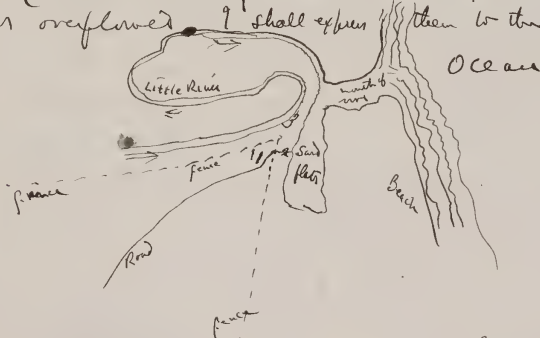 overflowed I shall express them to the
Ocean
Little River
mouth of
river
Sand
flats
fence
fence
Beach
Road
fence